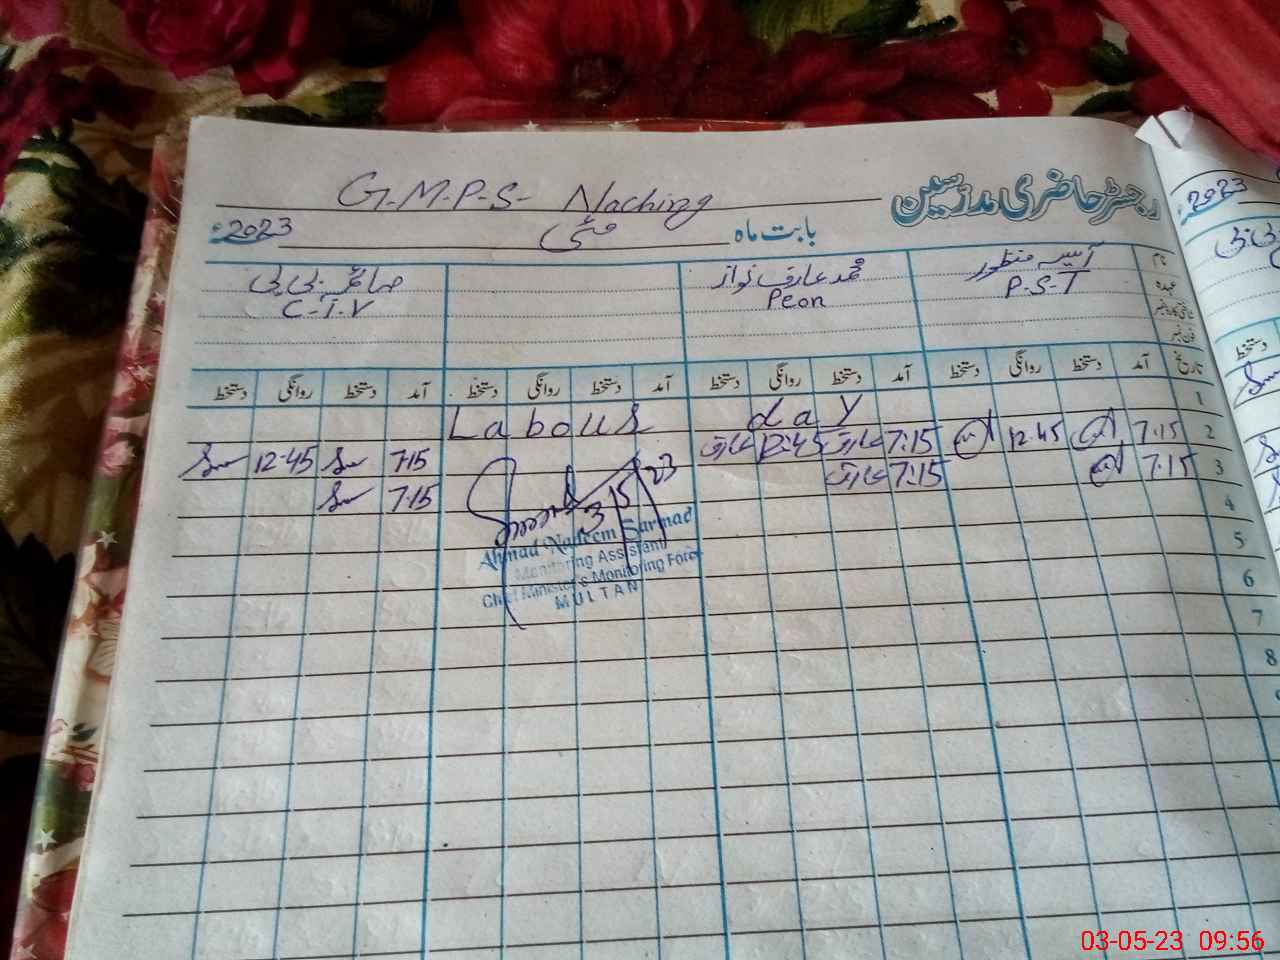 رجسٹر حاضری مدرسین
G.M.P.S- Naching
بابت ماہ مئی 2023ء
نام آسیہ منظور محمد عارف نواز صائمہ بی بی
عہدہ P.S.T Peon C.T.V
شناختی کارڈ نمبر
فون نمبر
تاریخ آمد دستخط روانگی دستخط آمد دستخط روانگی دستخط آمد دستخط روانگی دستخط آمد دستخط روانگی دستخط
1 Labour day
2 7:15 12:45 7:15 عارف 12:45 عارف 7:15 12:45
3 7:15 7:15 عارف 7:15
3/5/23
Ahmad Nadeem Sarmad
Monitoring Assistant
Chief Minister's Monitoring Force
MULTAN
4
5
6
7
8
2023ء
دستخط
03-05-23 09:56